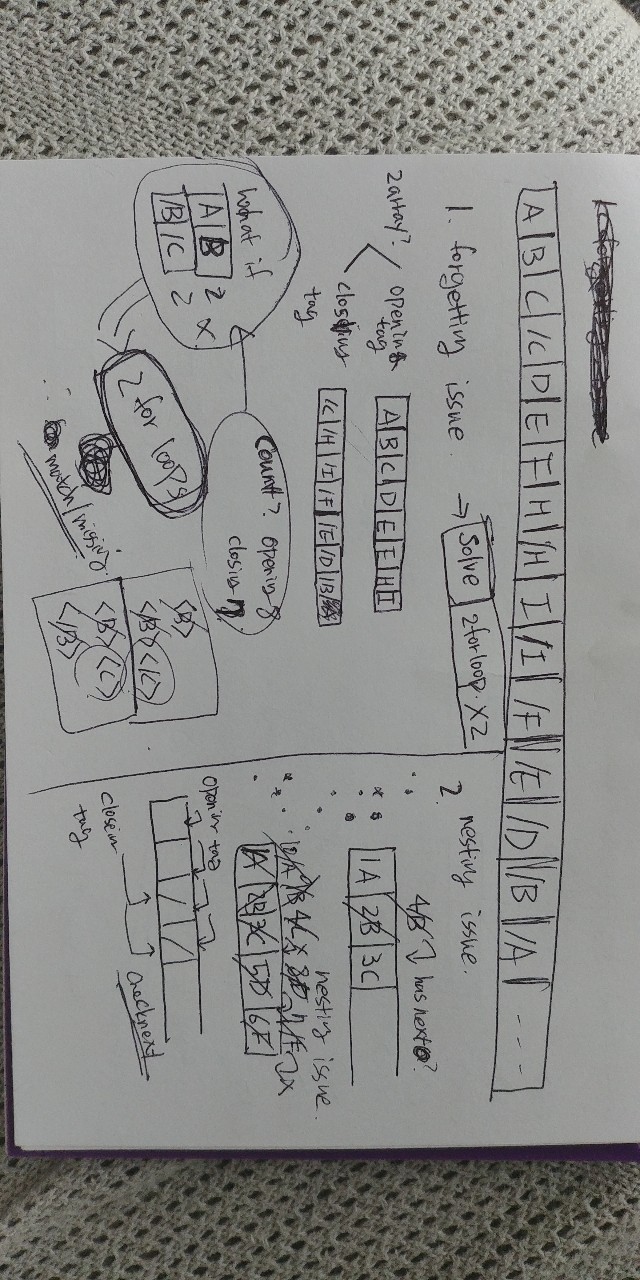 A B C /C D E F H /H I /I /F /E /D /B /A ---
1. forgetting issue. → Solve 2 for loop. X2
2 array?
opening tag
A B C D E F H I
closing tag
/C /H /I /F /E /D /B
Count? opening 8
closing 7
What if
A B 2
/B /C 2
X
2 for loops
match/missing.
<B>
</B> </C>
<B> <C>
</B>
2. nesting issue.
4/B has next?
1A 2B 3C
nesting issue.
/A /B 4/C X 7/F X
1A 2B 3C 5D 6F
opening tag
/ /
closein tag
checknext